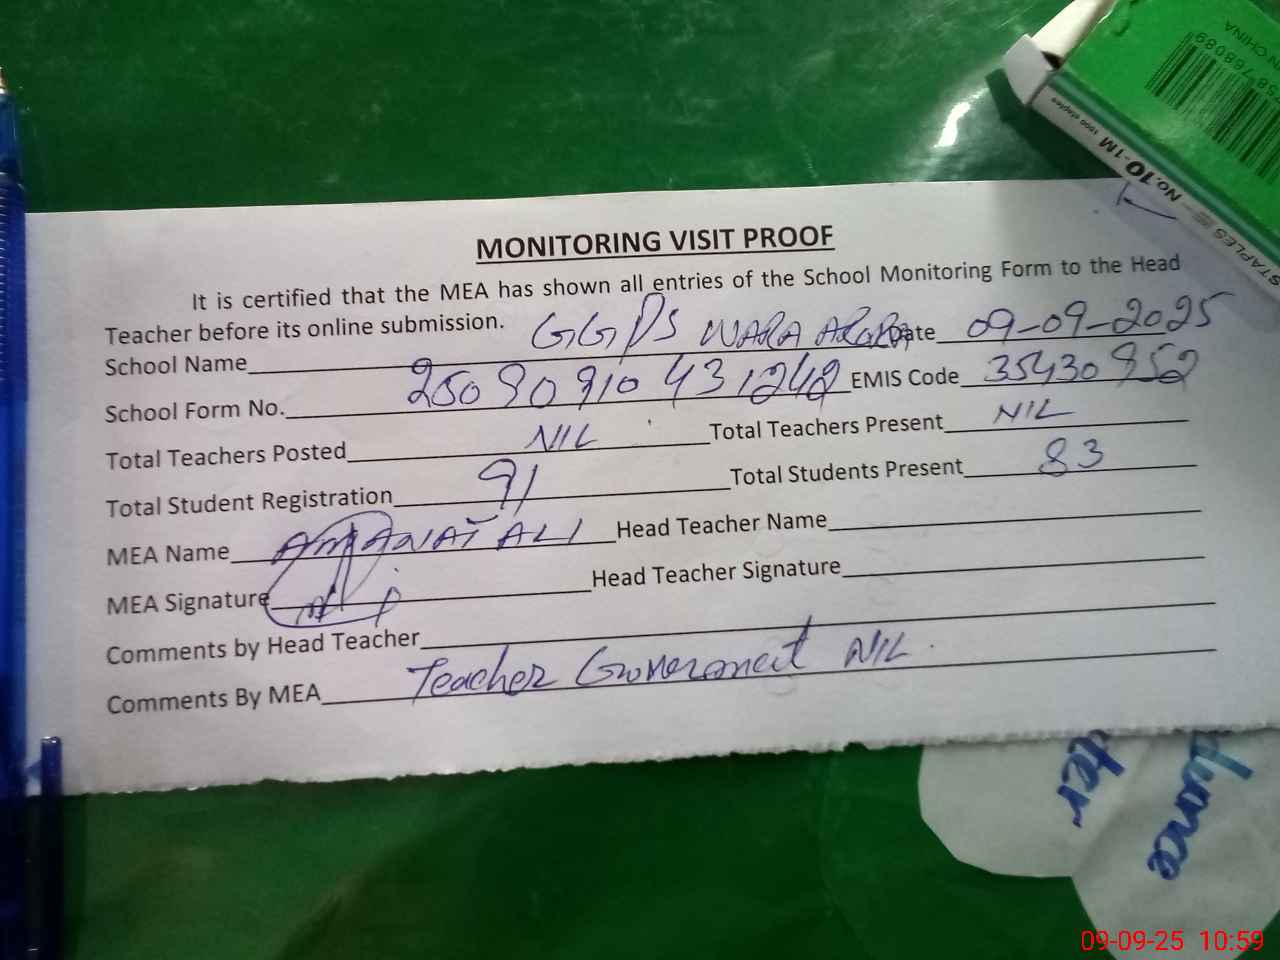 MONITORING VISIT PROOF
It is certified that the MEA has shown all entries of the School Monitoring Form to the Head
Teacher before its online submission.
School Name GGPS WARA Date 09-09-2025
School Form No. EMIS Code 35430952
Total Teachers Posted NIL Total Teachers Present NIL
Total Student Registration 91 Total Students Present 83
MEA Name AMANAT ALI Head Teacher Name
MEA Signature Head Teacher Signature
Comments by Head Teacher
Comments By MEA Teacher Government NIL.
STAPLES No.10-1M
1000 staples
IN CHINA
09-09-25 10:59